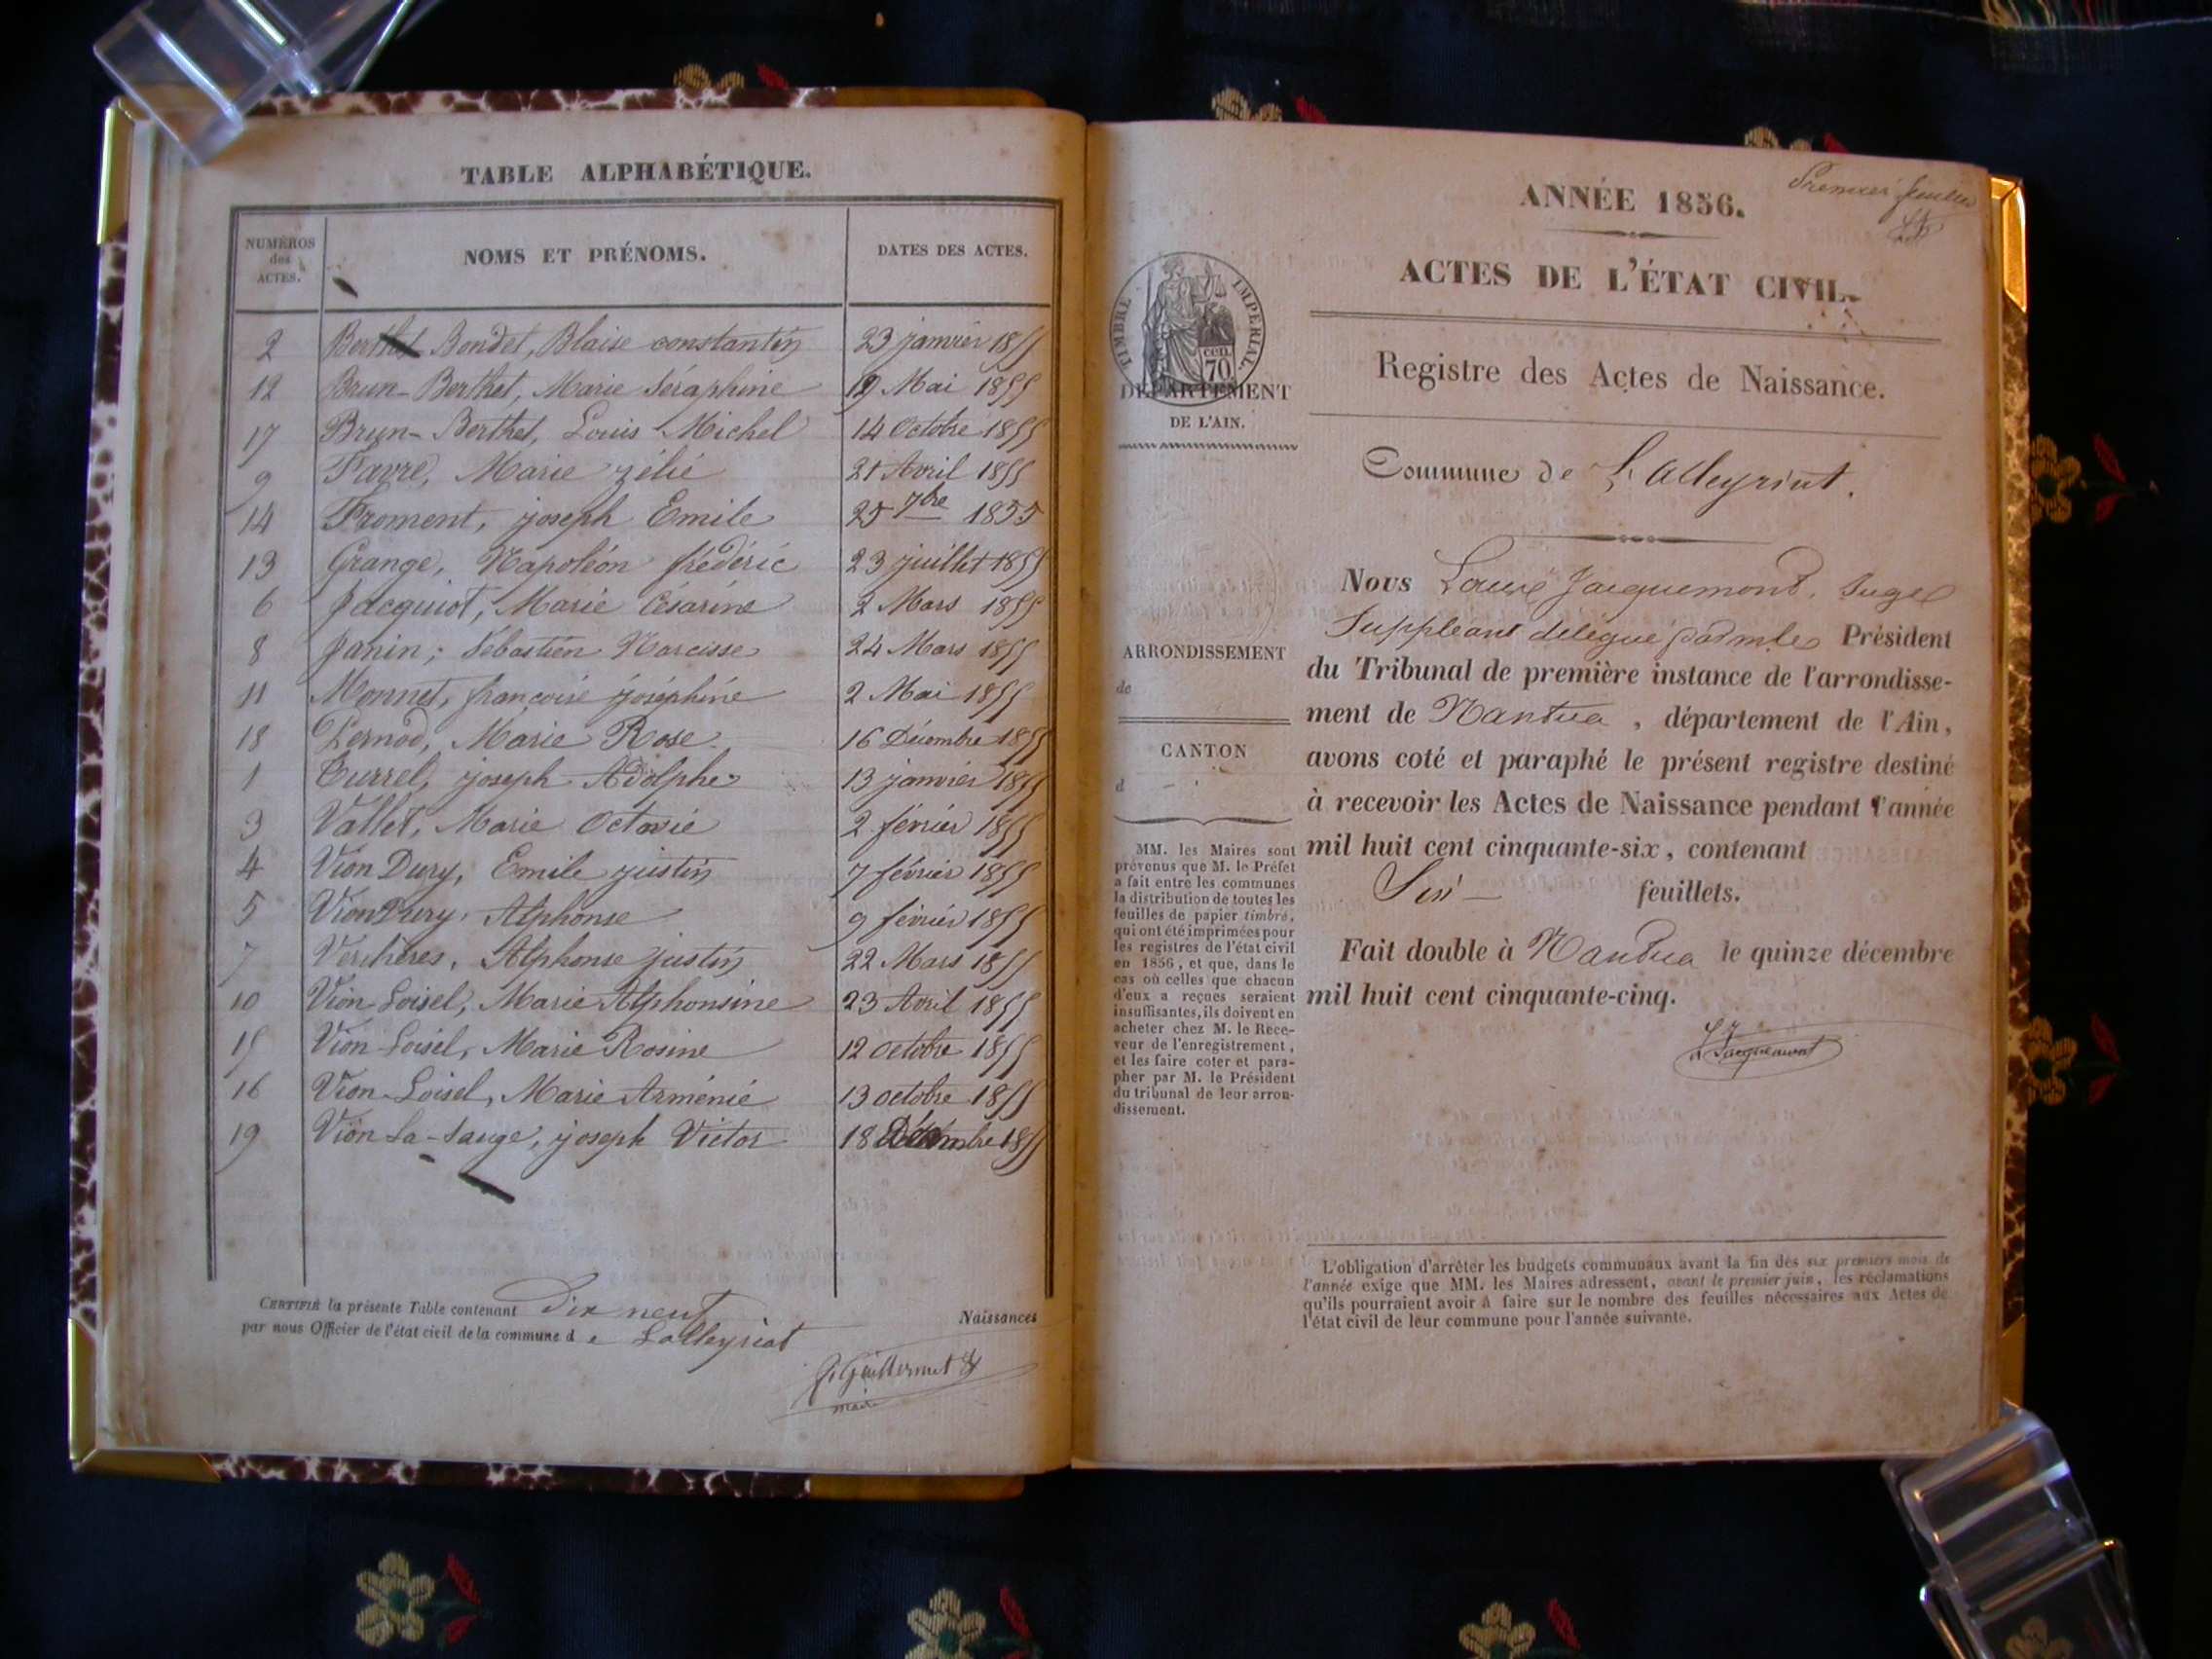 TABLE ALPHABÉTIQUE.
NUMÉROS des ACTES.
NOMS ET PRÉNOMS.
DATES DES ACTES.
2 Berthet Bondet, Blaise constantin 23 janvier 1855
12 Brun-Berthet, Marie Séraphine 19 Mai 1855
17 Brun-Berthet, Louis Michel 14 Octobre 1855
9 Favre, Marie zélie 21 Avril 1855
14 Froment, joseph Emile 25 7bre 1855
13 Grange, Napoléon frédéric 23 juillet 1855
6 Jacquiot, Marie Césarine 2 Mars 1855
8 Janin, Sébastien Narcisse 24 Mars 1855
11 Monnet, françoise joséphine 2 Mai 1855
18 Pernod, Marie Rose 16 Décembre 1855
1 Turrel, joseph Adolphe 13 janvier 1855
3 Vallet, Marie Octavie 2 février 1855
4 Vion Dury, Emile justin 7 février 1855
5 Vion Dury, Alphonse 9 février 1855
7 Verchères, Alphonse justin 22 Mars 1855
10 Vion-Loisel, Marie Alphonsine 23 Avril 1855
15 Vion-Loisel, Marie Rosine 12 octobre 1855
16 Vion-Loisel, Marie Arménie 13 octobre 1855
19 Vion-La-Sauge, joseph Victor 18 Décembre 1855
CERTIFIÉ la présente Table contenant Dix neuf Naissances
par nous Officier de l'état civil de la commune d e Lalleyriat
Guillermet
maire
Premier feuillet
ANNÉE 1856.
ACTES DE L'ÉTAT CIVIL.
TIMBRE IMPERIAL.
cen.
70
DÉPARTEMENT
DE L'AIN.
ARRONDISSEMENT
de
CANTON
d
MM. les Maires sont
prévenus que M. le Préfet
a fait entre les communes
la distribution de toutes les
feuilles de papier timbré,
qui ont été imprimées pour
les registres de l'état civil
en 1856, et que, dans le
cas où celles que chacun
d'eux a reçues seraient
insuffisantes, ils doivent en
acheter chez M. le Rece-
veur de l'enregistrement,
et les faire coter et para-
pher par M. le Président
du tribunal de leur arron-
dissement.
Registre des Actes de Naissance.
Commune de Lalleyriat.
Nous Louis Jacquemont, Juge
Suppléant délégué par Mr le Président
du Tribunal de première instance de l'arrondisse-
ment de Nantua, département de l'Ain,
avons coté et paraphé le présent registre destiné
à recevoir les Actes de Naissance pendant l'année
mil huit cent cinquante-six, contenant
Six feuillets.
Fait double à Nantua le quinze décembre
mil huit cent cinquante-cinq.
L Jacquemont
L'obligation d'arrêter les budgets communaux avant la fin des six premiers mois de
l'année exige que MM. les Maires adressent, avant le premier juin, les réclamations
qu'ils pourraient avoir à faire sur le nombre des feuilles nécessaires aux Actes de
l'état civil de leur commune pour l'année suivante.